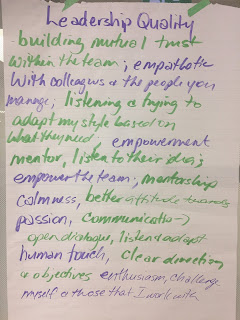 Leadership Quality
building mutual trust
within the team; empathetic
with colleagues & the people you
manage; listening & trying to
adapt my style based on
what they need; empowerment
mentor, listen to their ideas;
empower the team; mentorship
calmness, better attitude towards
passion, communication →
open dialogue, listen & adapt
human touch, clear direction
& objectives enthusiasm, challenge
myself & those that I work with